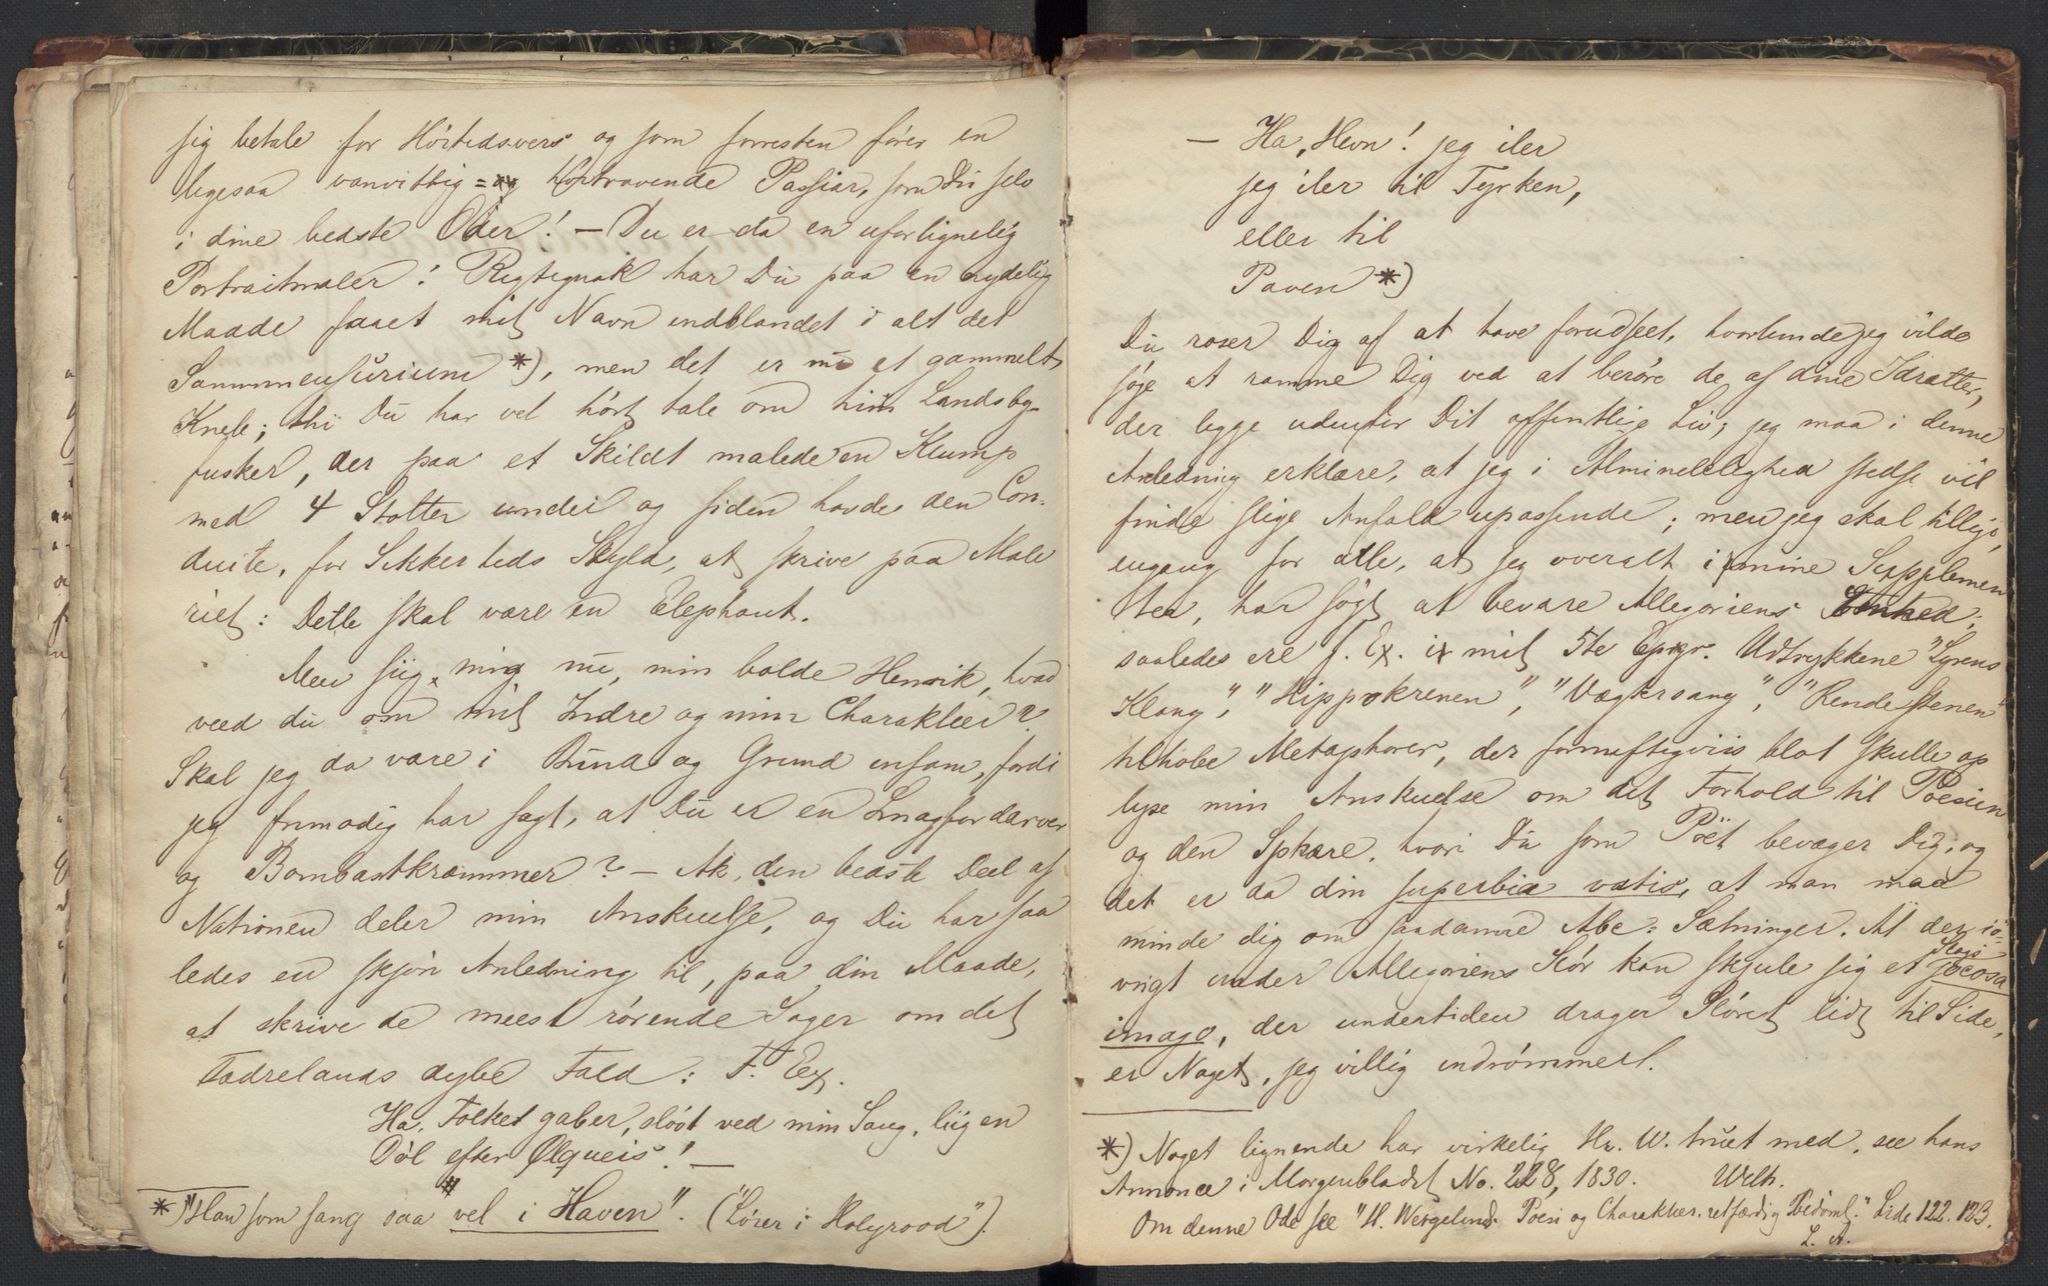 sig betale for Höitidsvers og som forresten fører en
ligesaa vanvittig= og höitravende Passiar, som Du selv
i dine bedste Oder! – Du er da en uforlignelig
Portraitmaler! Rigtignok har Du paa en nydelig
Maade faaet mit Navn indblandet i alt det
Sammensurium *), men det er nu et gammelt
Kneb; thi Du har vel hört tale om hiin Landsby-
fusker, der paa et Skildt malede en Klump
med 4 Stolter under og siden havde den Con-
duite, for Sikkerheds Skyld, at skrive paa Male
riet: Dette skal være en Elephant.
Men siig mig nu, min bolde Henrik, hvad
veed du om mit Indre og min Charakteer?
Skal jeg da være i Bund og Grund infam, fordi
jeg frimodig har sagt, at Du er en Smagfordærver
og Bombastkræmmer? – Ak, den bedste Deel af
Nationen deler min Anskuelse, og Du har saa
ledes en skjön Anledning til, paa din Maade,
at skrive de meest rörende Sager om det
Fædrelands dybe Fald: F. Ex.
Ha, Folket gaber, slövt ved min Sang, liig en
Döl efter Ølqueis! –
*) "Han som sang saa vel i Haven". ("Löver i Holyrood").
– Ha, Hevn! jeg iler
jeg iler til Tyrken,
eller til
Paven *)
Du roser Dig af at have forudseet, hvorlunde jeg vilde
söge at ramme Dig ved at beröre de af dine Idrætter,
der ligge udenfor Dit offentlige Liv; jeg maa i denne
Anledning erklære, at jeg i Almindelighed stedse vil
finde slige Anfald upassende; men jeg skal tillige,
engang for alle, at jeg overalt i mine Supplemen
ter, har sögt at bevare Allegoriens Eenhed;
saaledes ere f. Ex. i mit 5te Epigr. Udtrykkene "Lyrens
Klang", "Hippokrenen", "Vægtersang", "Rendestenen"
tilhobe Metaphorer, der fornuftigviis blot skulle op
lyse min Anskuelse om dit Forhold til Poesien
og den Sphære, hvori Du som Poët bevæger Dig; og
det er da din superbia vatis, at man maa
minde dig om saadanne Abc-Sætninger. At der iö-
vrigt under Allegoriens Slör kan skjule sig et Slags jocosa
imago, der undertiden drager Slöret lidt til Side,
er Noget, jeg villig indrömmer.
*) Noget lignende har virkelig Hr. W. truet med, see hans
Annonce i Morgenbladet No. 228, 1830. Welh.
Om denne Ode see "H. Wergelands Poesi og Charakteer retfærdig Bedöml." Side 122. 123.
L. A.